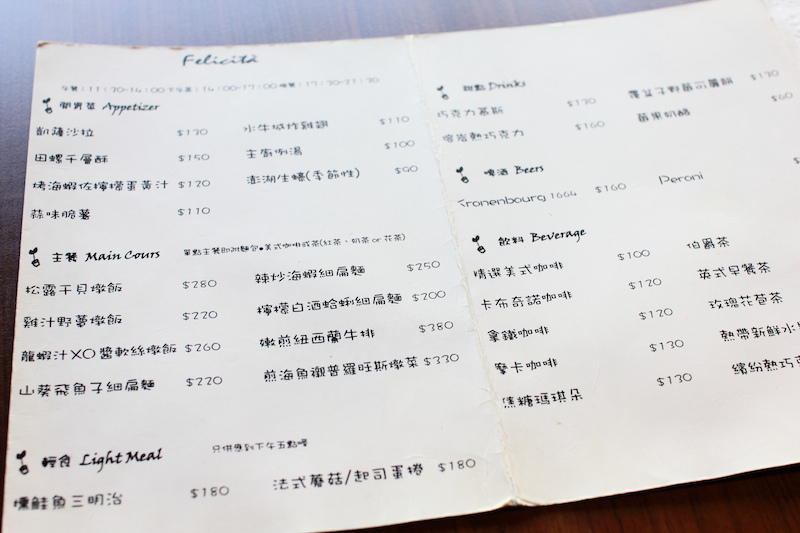 Felicità
午餐:11:30-14:00下午茶:14:00-17:00晚餐:17:30-21:30
開胃菜 Appetizer
凱薩沙拉 $130
田螺千層酥 $150
烤海蝦佐檸檬蛋黃汁 $120
蒜味脆薯 $110
水牛城炸雞翅 $110
主廚例湯 $100
澎湖生蠔(季節性) $90
主餐 Main Cours 單點主餐即附麵包●美式咖啡或茶(紅茶、奶茶 or 花茶)
松露干貝燉飯 $280
雞汁野蕈燉飯 $220
龍蝦汁XO醬軟絲燉飯 $260
山葵飛魚子細扁麵 $220
辣炒海蝦細扁麵 $250
檸檬白酒蛤蜊細扁麵 $200
嫩煎紐西蘭牛排 $380
煎海魚襯普羅旺斯燉菜 $330
輕食 Light Meal 只供應到下午五點喔
燻鮭魚三明治 $180
法式蘑菇/起司蛋捲 $180
甜點 Drinks
巧克力慕斯 $130
熔岩熱巧克力 $160
覆盆子野莓可麗餅 $130
蘋果奶酪 $60
啤酒 Beers
Kronenbourg 1664 $160
Peroni $
飲料 Beverage
精選美式咖啡 $100
卡布奇諾咖啡 $120
拿鐵咖啡 $120
摩卡咖啡 $130
焦糖瑪琪朵 $130
伯爵茶
英式早餐茶
玫瑰花苞茶
熱帶新鮮水
繽紛熱巧